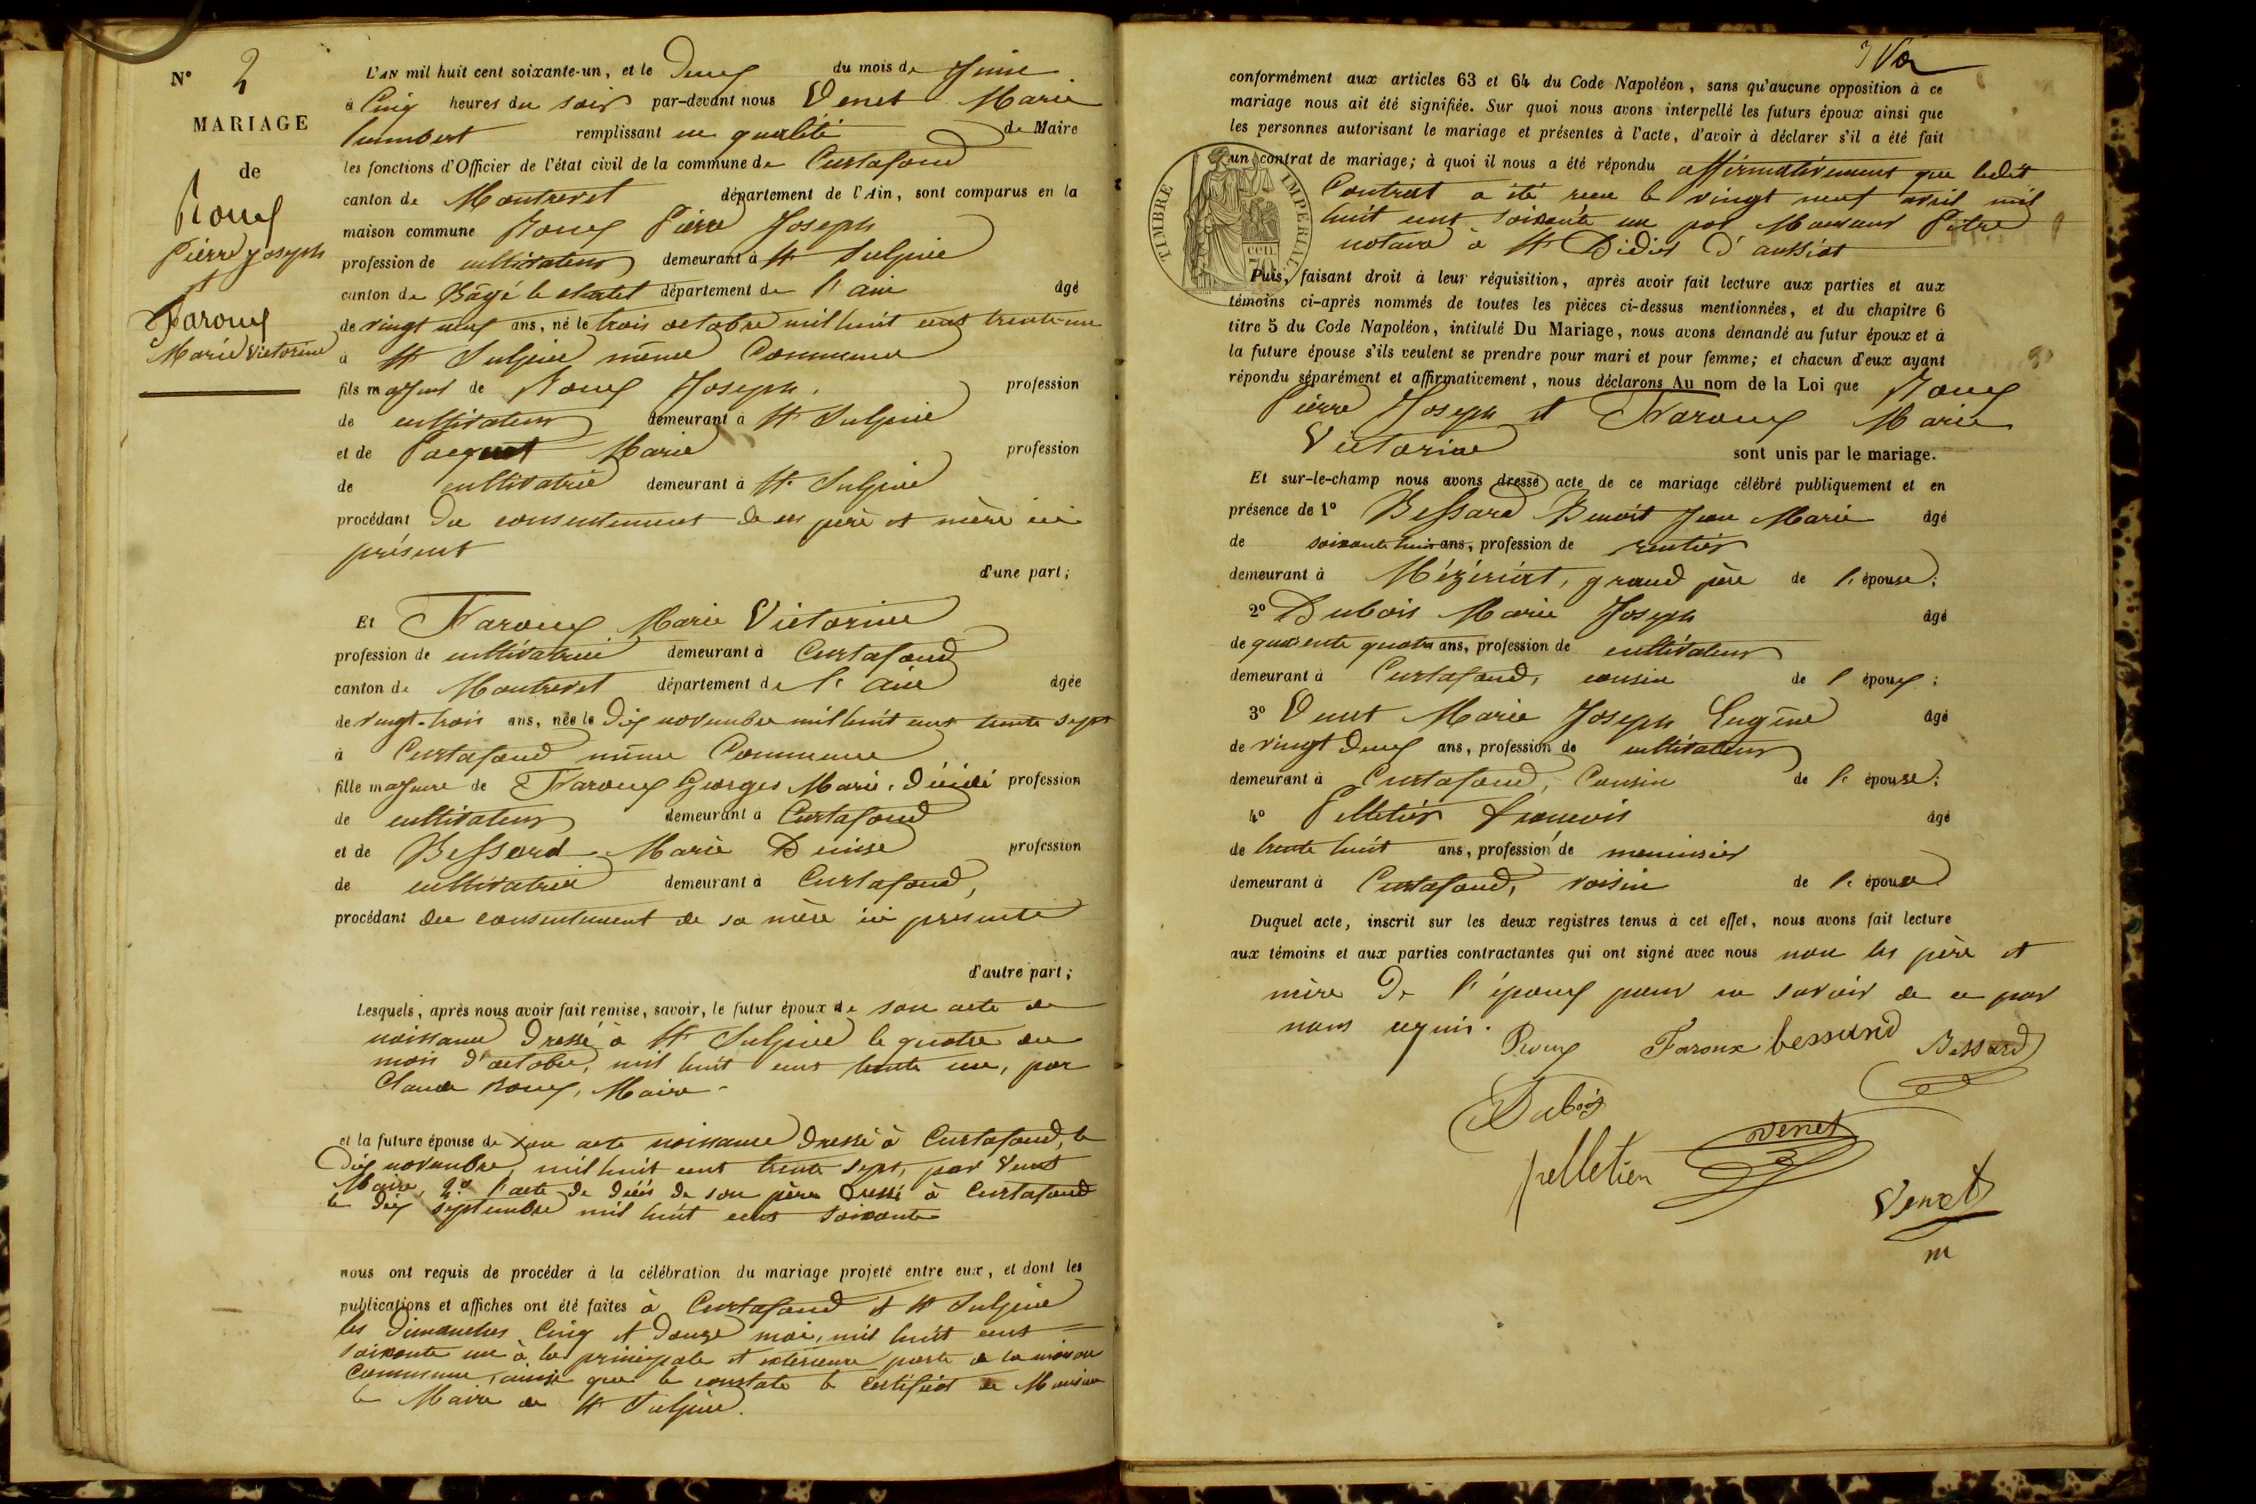 N° 2
MARIAGE
de
Roux
Pierre Joseph
et
Faroux
Marie Victorine
L'AN mil huit cent soixante-un, et le Deux du mois de Juin
à Cinq heures du soir par-devant nous Venet Marie
humbert remplissant en qualité de Maire
les fonctions d'Officier de l'état civil de la commune de Curtafond
canton de Montrevel département de l'Ain, sont comparus en la
maison commune Roux Pierre Joseph
profession de cultivateur demeurant à St Sulpice
canton de Bâgé le chatel département de l'ain âgé
de vingt neuf ans, né le trois octobre mil huit cent trente-un
à St Sulpice même Commune
fils majeur de Roux Joseph, profession
de cultivateur demeurant à St Sulpice
et de Marie profession
de cultivatrice demeurant à St Sulpice
procédant du consentement de ses père et mère ici
présent
d'une part;
Et Faroux Marie Victorine
profession de cultivatrice demeurant à Curtafond
canton de Montrevel département de l'ain âgée
de vingt-trois ans, née le Dix novembre mil huit cent trente sept
à Curtafond même Commune
fille majeure de Faroux Georges Marie, décédé profession
de cultivateur demeurant à Curtafond
et de Bessard Marie Denise profession
de cultivatrice demeurant à Curtafond,
procédant du consentement de sa mère ici présente
d'autre part;
Lesquels, après nous avoir fait remise, savoir, le futur époux de son acte de
naissance Dressé à St Sulpice le quatre du
mois d'octobre, mil huit cent trente un, par
Claude Roux, Maire
et la future épouse de son acte naissance dressé à Curtafond, le
Dix novembre, mil huit cent trente sept, par Venet
Maire, 2° l'acte de décès de son père dressé à Curtafond
le dix septembre mil huit cent soixante
nous ont requis de procéder à la célébration du mariage projeté entre eux, et dont les
publications et affiches ont été faites à Curtafond et St Sulpice
les dimanches Cinq et Douze mai, mil huit cent
soixante un à la principale et extérieure porte de la maison
Commune, ainsi que le constate le certificat de Monsieur
le Maire de St Sulpice.
conformément aux articles 63 et 64 du Code Napoléon, sans qu'aucune opposition à ce
mariage nous ait été signifiée. Sur quoi nous avons interpellé les futurs époux ainsi que
les personnes autorisant le mariage et présentes à l'acte, d'avoir à déclarer s'il a été fait
un contrat de mariage; à quoi il nous a été répondu affirmativement que ledit
Contrat a été reçu le vingt neuf avril mil
huit cent soixante un par Monsieur Pitre
notaire à St Didier d'aussiat
TIMBRE IMPERIAL
Puis, faisant droit à leur réquisition, après avoir fait lecture aux parties et aux
témoins ci-après nommés de toutes les pièces ci-dessus mentionnées, et du chapitre 6
titre 5 du Code Napoléon, intitulé Du Mariage, nous avons demandé au futur époux et à
la future épouse s'ils veulent se prendre pour mari et pour femme; et chacun d'eux ayant
répondu séparément et affirmativement, nous déclarons Au nom de la Loi que Roux
Pierre Joseph et Faroux Marie
Victorine sont unis par le mariage.
Et sur-le-champ nous avons dressé acte de ce mariage célébré publiquement et en
présence de 1° Bessard Benoit Jean Marie âgé
de soixante ans, profession de rentier
demeurant à Mézériat, grand père de l'épouse;
2° Dubois Marie Joseph âgé
de quarente quatre ans, profession de cultivateur
demeurant à Curtafond, cousin de l'époux;
3° Venet Marie Joseph Eugène âgé
de vingt deux ans, profession de cultivateur
demeurant à Curtafond, Cousin de l'épouse;
4° Pelletier françois âgé
de trente huit ans, profession de menuisier
demeurant à Curtafond, voisin de l'épouse
Duquel acte, inscrit sur les deux registres tenus à cet effet, nous avons fait lecture
aux témoins et aux parties contractantes qui ont signé avec nous non les père et
mère de l'époux pour ne savoir de ce par
nous requis.
Roux Faroux bessard Bessard
Dubois
pelletier venet
Venet
m